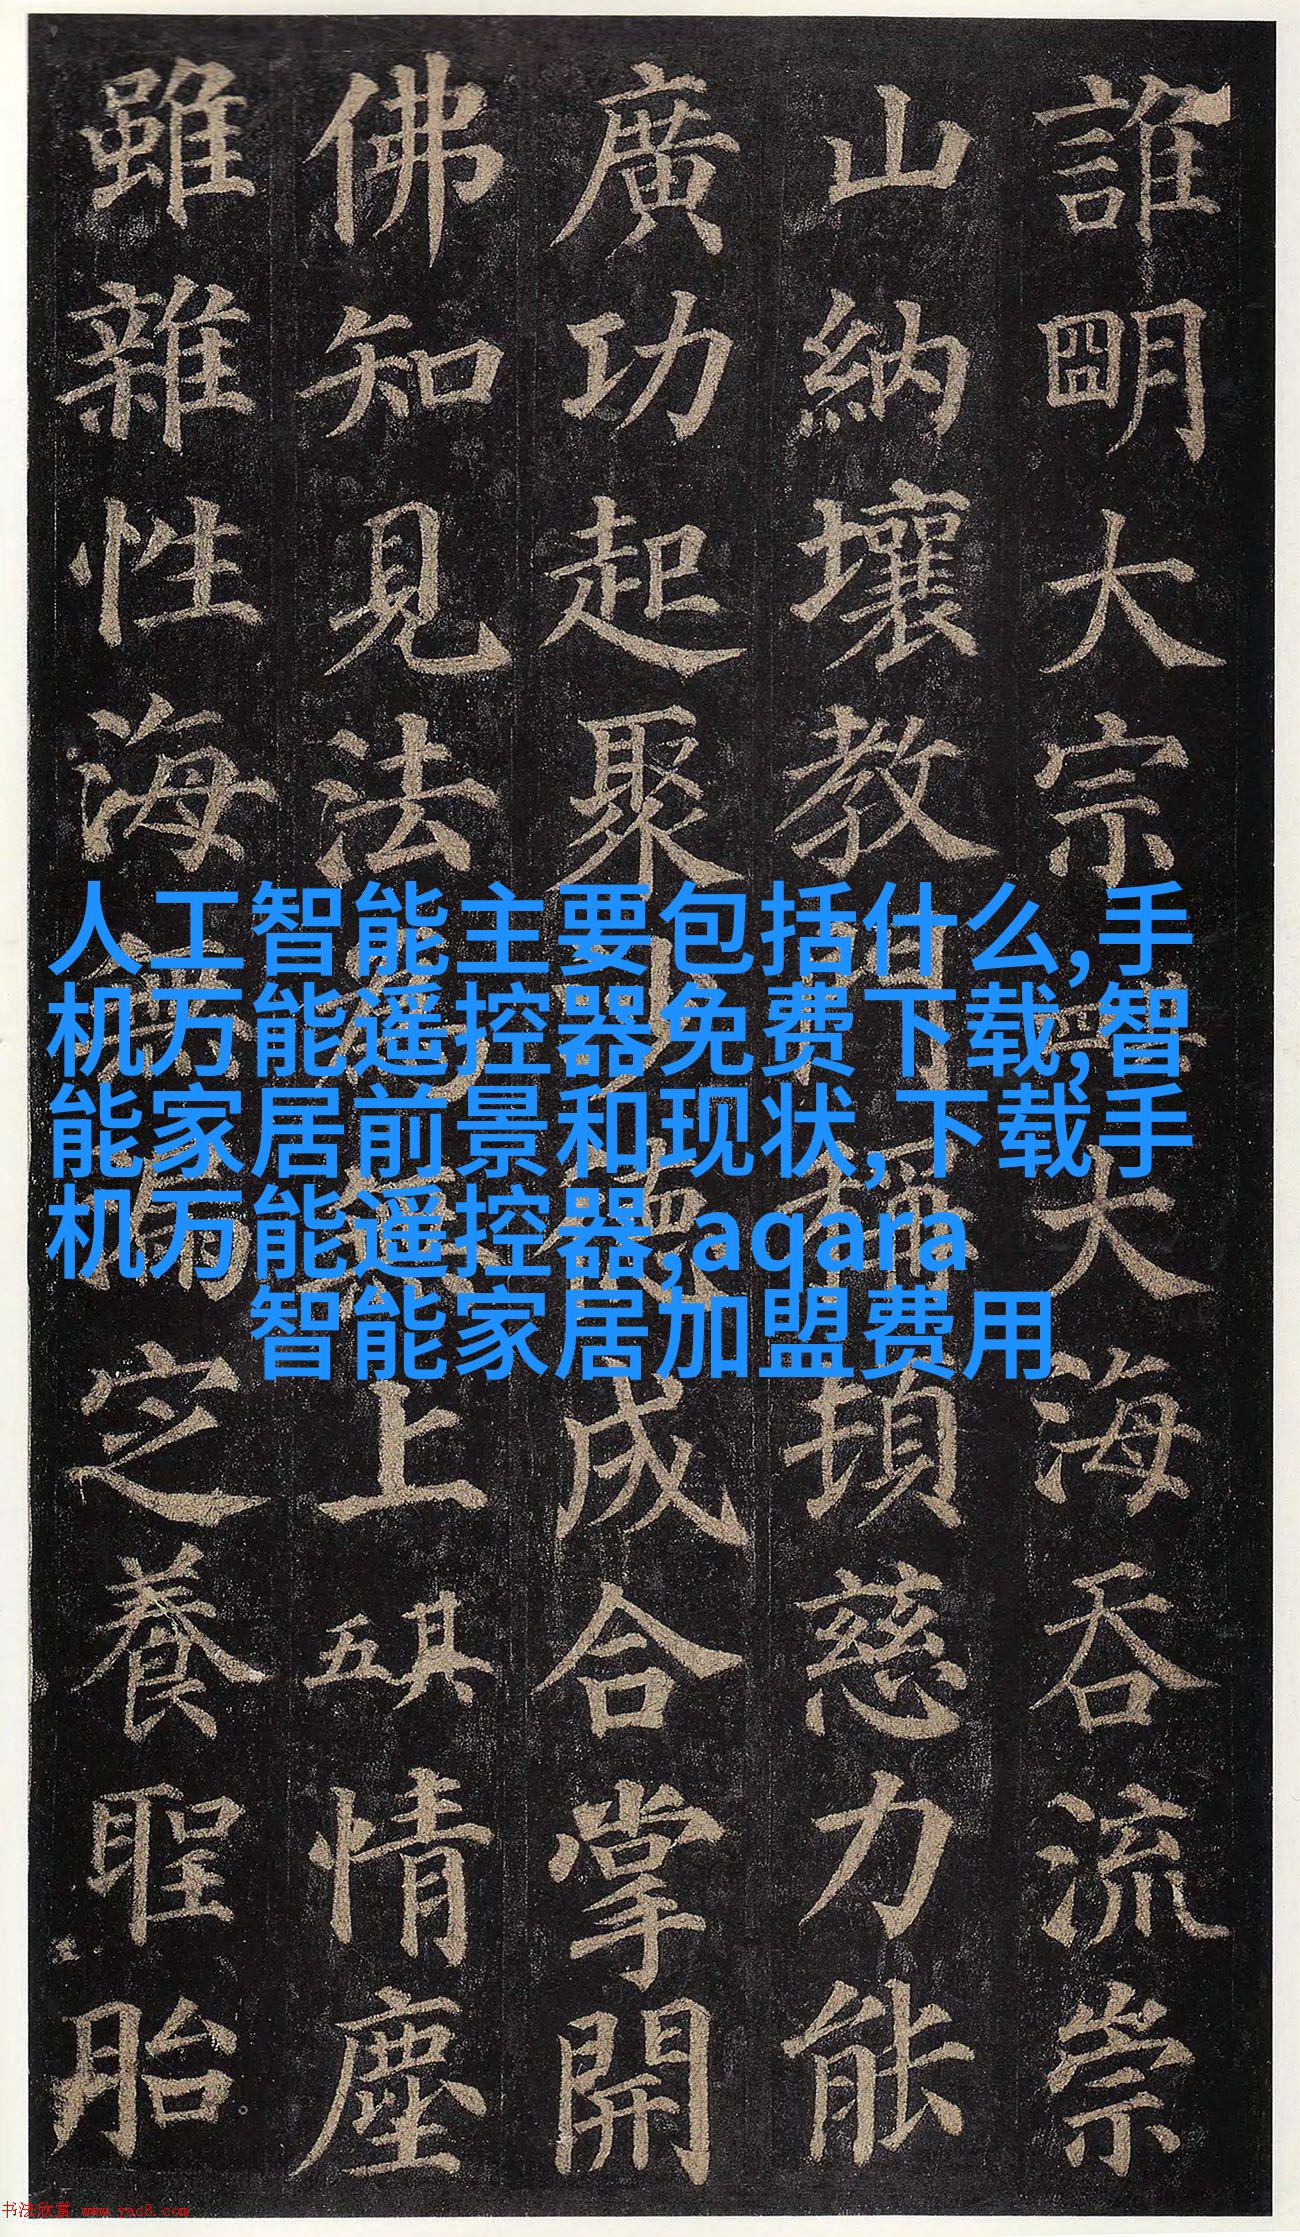 誰明大宗大海吞流崇
山納壤教門稱頓慈力能
廣功起聚沙德成合掌開
佛知見法為無上其五情塵
雖雜性海無漏定養聖胎
人工智能主要包括什么,手
机万能遥控器免费下载,智
能家居前景和现状,下载手
机万能遥控器,aqara
智能家居加盟费用
书法欣赏 www.yac8.com